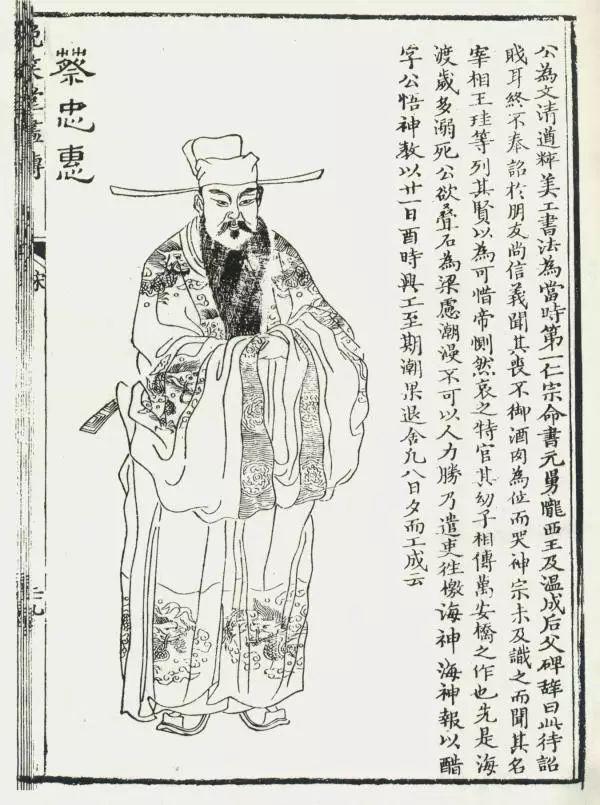 公為文清遒粹美工書法為當時第一仁宗命書元舅隴西王及温成后父碑辭曰此待詔
職耳終不奉詔於朋友尚信義聞其喪不御酒肉為位而哭神宗未及識之而聞其名
宰相王珪等列其賢以為可惜帝惻然哀之特官其幼子相傳萬安橋之作也先是海
渡歲多溺死公欲叠石為梁慮潮漫不可以人力勝乃遣吏往檄海神海神報以醋
字公悟神教以廿一日酉時興工至期潮果退舍凡八日夕而工成云
蔡忠惠
晚笑堂畫傳